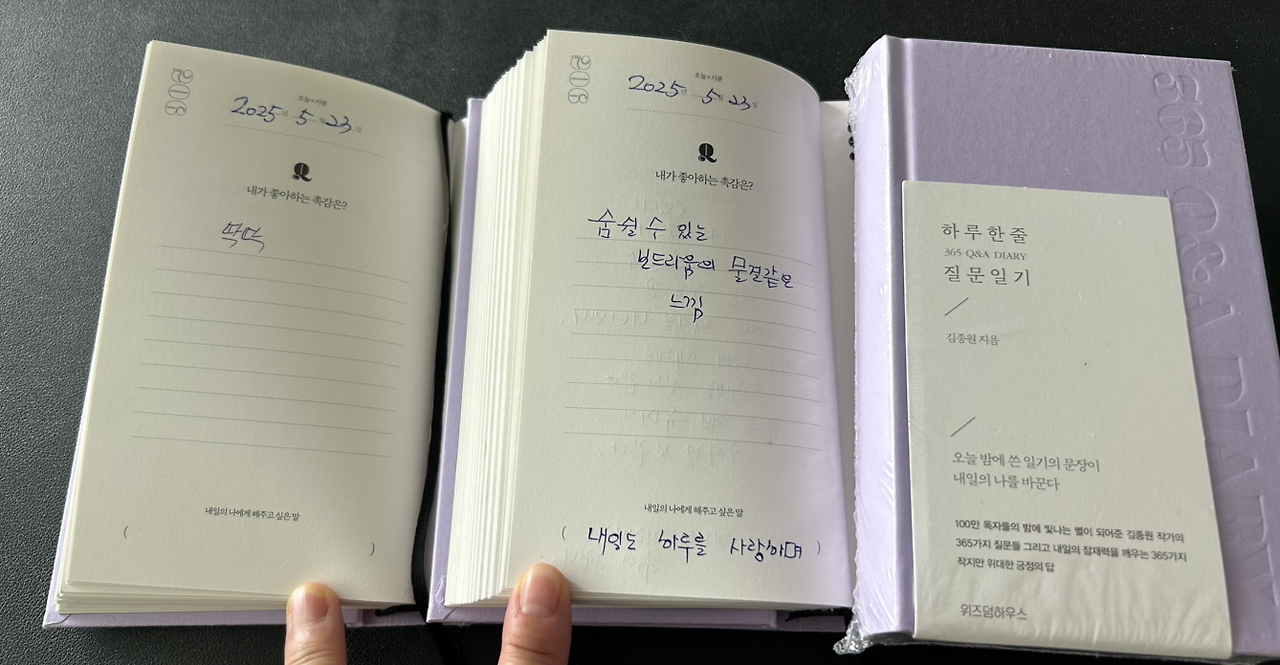 205
오늘×기분
2025년 5월 23일
Q
내가 좋아하는 촉감은?
딱딱
내일의 나에게 해주고 싶은 말
(                    )
206
오늘×기분
2025년 5월 23일
Q
내가 좋아하는 촉감은?
숨쉴 수 있는
보드라움의 물결같은
느낌
내일의 나에게 해주고 싶은 말
( 내일도 하루를 사랑하며 )
365 Q&A DIARY
하루 한 줄
365 Q&A DIARY
질문 일기
김종원 지음
오늘 밤에 쓴 일기의 문장이
내일의 나를 바꾼다
100만 독자들의 밤에 빛나는 별이 되어준 김종원 작가의
365가지 질문들 그리고 내일의 잠재력을 깨우는 365가지
작지만 위대한 긍정의 답
위즈덤하우스